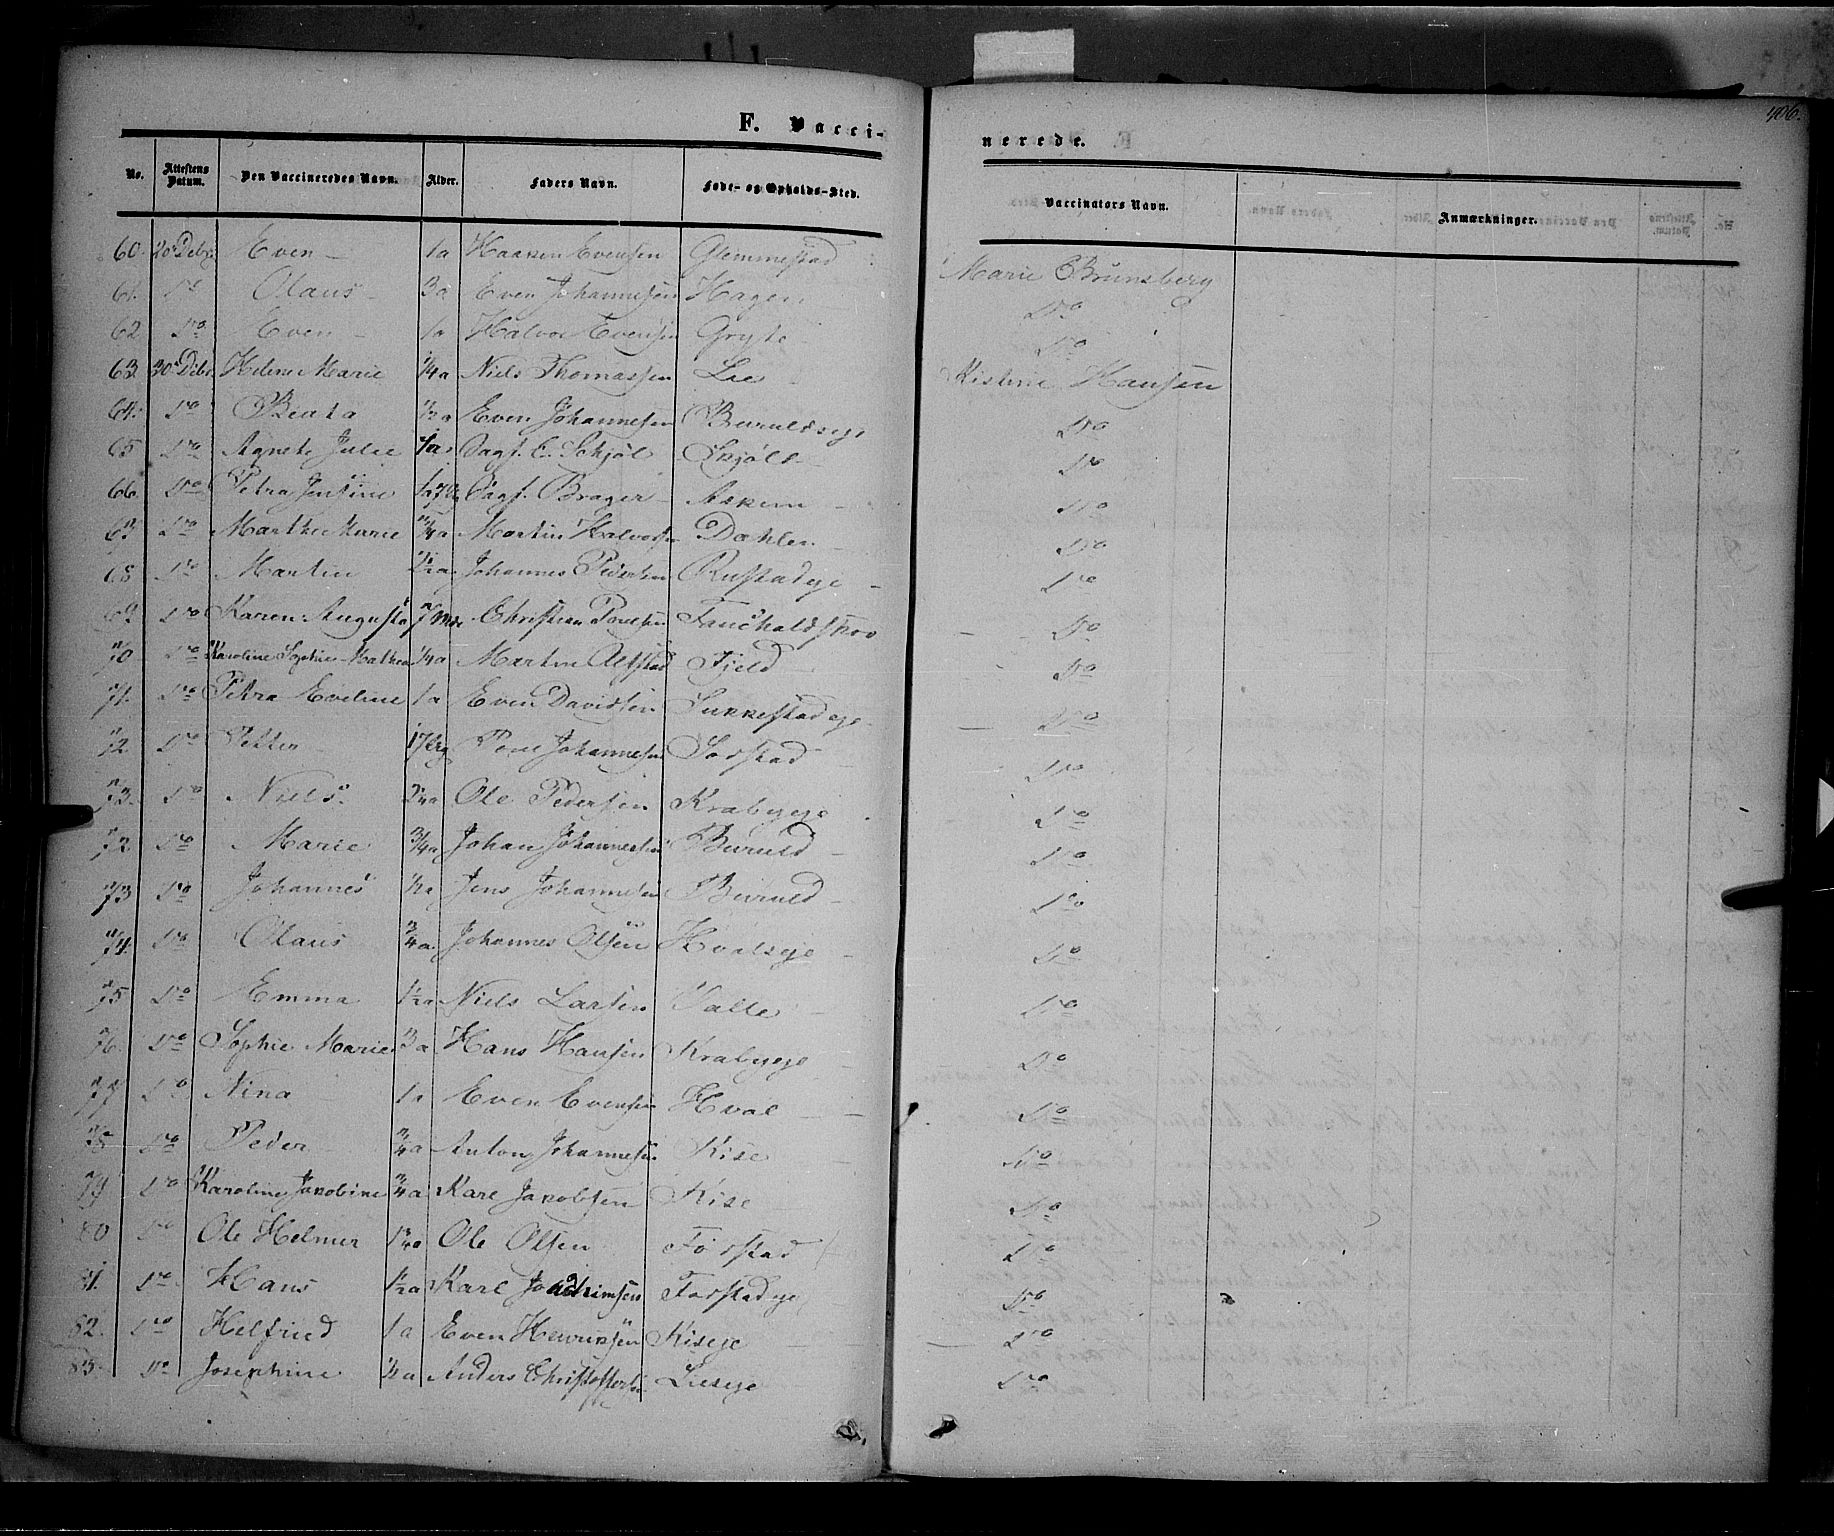 406.
F. Vacci-
nerede.
No. Attestens Datum. Den Vaccineredes Navn. Alder. Faders Navn. Føde- og Opholds-Sted. Vaccinators Navn. Anmærkninger.
60. 20 Debr. Even 1a Haaken Evensen Glemmestad Marie Brunsberg
61. Do Olaus 3a Even Johannesen Hagen Do
62 Do Even 1a Halvor Evensen Gryte Do
63. 30 Debr. Helene Marie 1/4a Niels Thomassen Lie Kistine Hansen
64. Do Beata 1/2a Even Johannesen Buruldseje Do
65 Do Agnete Julie Sagf. E. Schjøl Skjøll Do
66. Do Petra Jensine Sagf. Brager Askem Do
67 Do Marthe Marie 3/4a Martin Halvorsen Dahlen Do
68 Do Martin 2 1/2a Johannes Pedersen Rustadeje Do
69 Do Karen Augusta 7 Mdr Christian Povelsen Fauchaldskov Do
70 Do Karoline Sophie Mathea 1/4a Martin Alfstad Fjeld Do
71. Do Petra Eveline 1a Even Davidsen Sukkestadeje Do
72. Do Petter Povel Johannesen Sorstad Do
73. Do Niels Ole Pedersen Krabyeje Do
72. Do Marie 3/4a Johan Johannesen Buruld Do
73 Do Johannes 1/2a Jens Johannesen Buruld Do
74. Do Olaus 3/4a Johannes Olsen Hvalseje Do
75 Do Emma 1 1/2a Niels Larsen Valle Do
76. Do Sophie Marie 3a Hans Hansen Krabyeje Do
77 Do Nina 1a Even Evensen Hval Do
78 Do Peder 3/4a Anton Johannesen Kise Do
79 Do Karoline Jakobine 3/4a Karl Jakobsen Kise Do
80 Do Ole Helmer 1 3/4a Ole Olsen Forstad Do
81. Do Hans 1 1/2a Karl Joachimsen Forstadeje Do
82. Do Helfried 1a Even Henriksen Kiseje Do
83. Do Josephine 1/4a Anders Christoffersen Lieseje Do